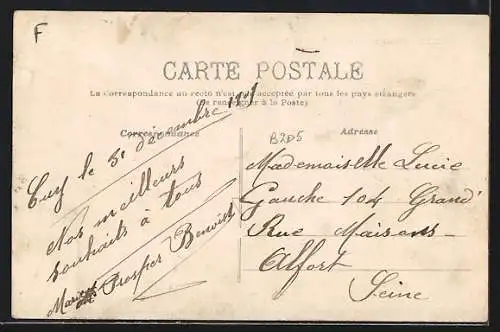 F
CARTE POSTALE
La Correspondance au recto n'est pas acceptée par tous les pays étrangers
(Se renseigner à la Poste)
Correspondance
Cuy le 31 décembre
Nos meilleurs
souhaits à tous
Prosper Benoist
B2D5
Adresse
Mademoiselle Lucie
Gauche 104 Grand'
Rue Maisons-
Alfort
Seine